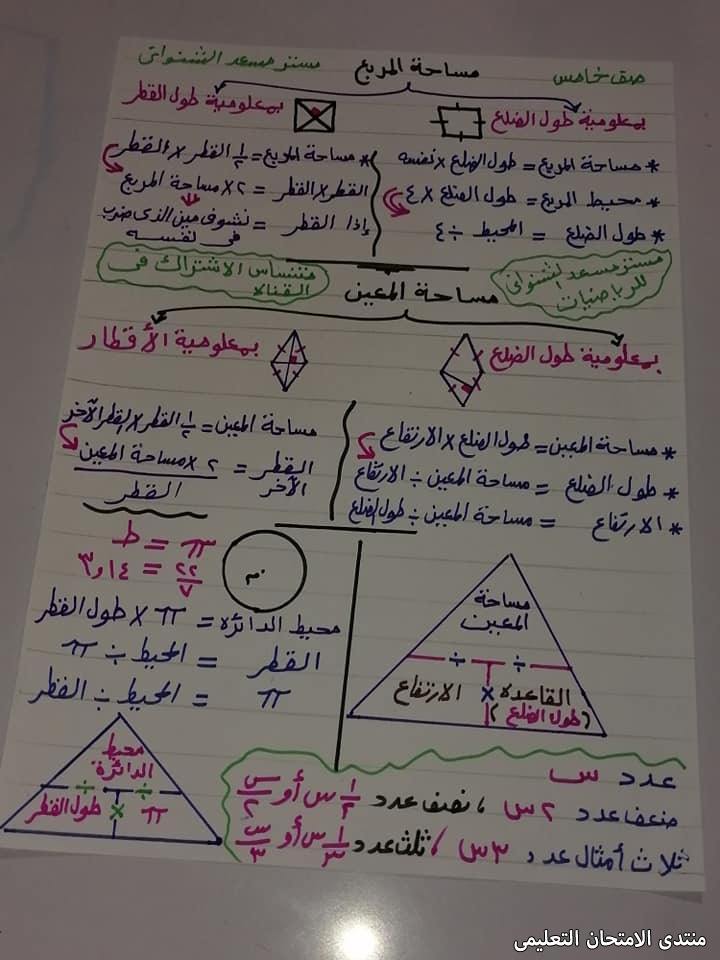 صف خامس
مساحة المربع
مستر مسعد الشنوانى
بمعلومية طول الضلع
بمعلومية طول القطر
* مساحة المربع = طول الضلع × نفسه
* محيط المربع = طول الضلع × ٤
* طول الضلع = المحيط ÷ ٤
* مساحة المربع = ١/٢ القطر × القطر
القطر × القطر = ٢ × مساحة المربع
إذا القطر = نشوف مين الذى ضرب
فى نفسه
مستر مسعد الشنوانى
للرياضيات
مساحة المعين
متنساس الاشتراك فى
القناة
بمعلومية طول الضلع
بمعلومية الأقطار
* مساحة المعين = طول الضلع × الارتفاع
* طول الضلع = مساحة المعين ÷ الارتفاع
* الارتفاع = مساحة المعين ÷ طول الضلع
مساحة المعين = ١/٢ القطر × القطر الآخر
القطر الآخر = ٢ × مساحة المعين / القطر
مساحة
المعين
÷ ÷
القاعدة × الارتفاع
(طول الضلع)
π = ط
٢٢/٧ = ٣,١٤
م
محيط الدائرة = π × طول القطر
القطر = المحيط ÷ π
π = المحيط ÷ القطر
محيط
الدائرة
÷ ÷
π × طول القطر
عدد س
ضعف عدد ٢س ، نصف عدد ١/٢ س أو س/٢
ثلاث أمثال عدد ٣س ، ثلث عدد ١/٣ س أو س/٣
منتدى الامتحان التعليمى